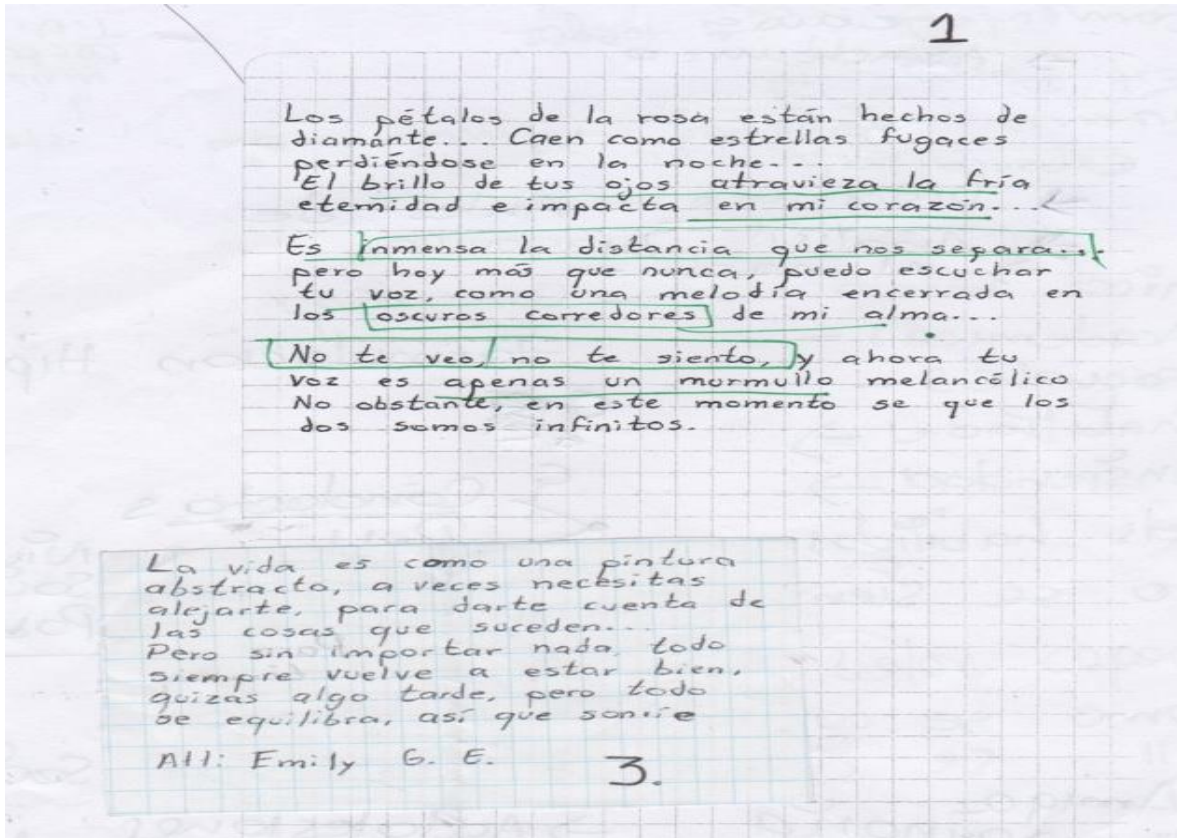 1
Los pétalos de la rosa están hechos de
diamante... Caen como estrellas fugaces
perdiéndose en la noche...
El brillo de tus ojos atravieza la fría
eternidad e impacta en mi corazón...
Es inmensa la distancia que nos separa...
pero hoy más que nunca, puedo escuchar
tu voz, como una melodía encerrada en
los oscuros corredores de mi alma...
No te veo, no te siento, y ahora tu
voz es apenas un murmullo melancólico
No obstante, en este momento se que los
dos somos infinitos.
La vida es como una pintura
abstracto, a veces necesitas
alejarte, para darte cuenta de
las cosas que suceden...
Pero sin importar nada, todo
siempre vuelve a estar bien,
quizás algo tarde, pero todo
se equilibra, así que sonríe
Att: Emily G. E.
3.